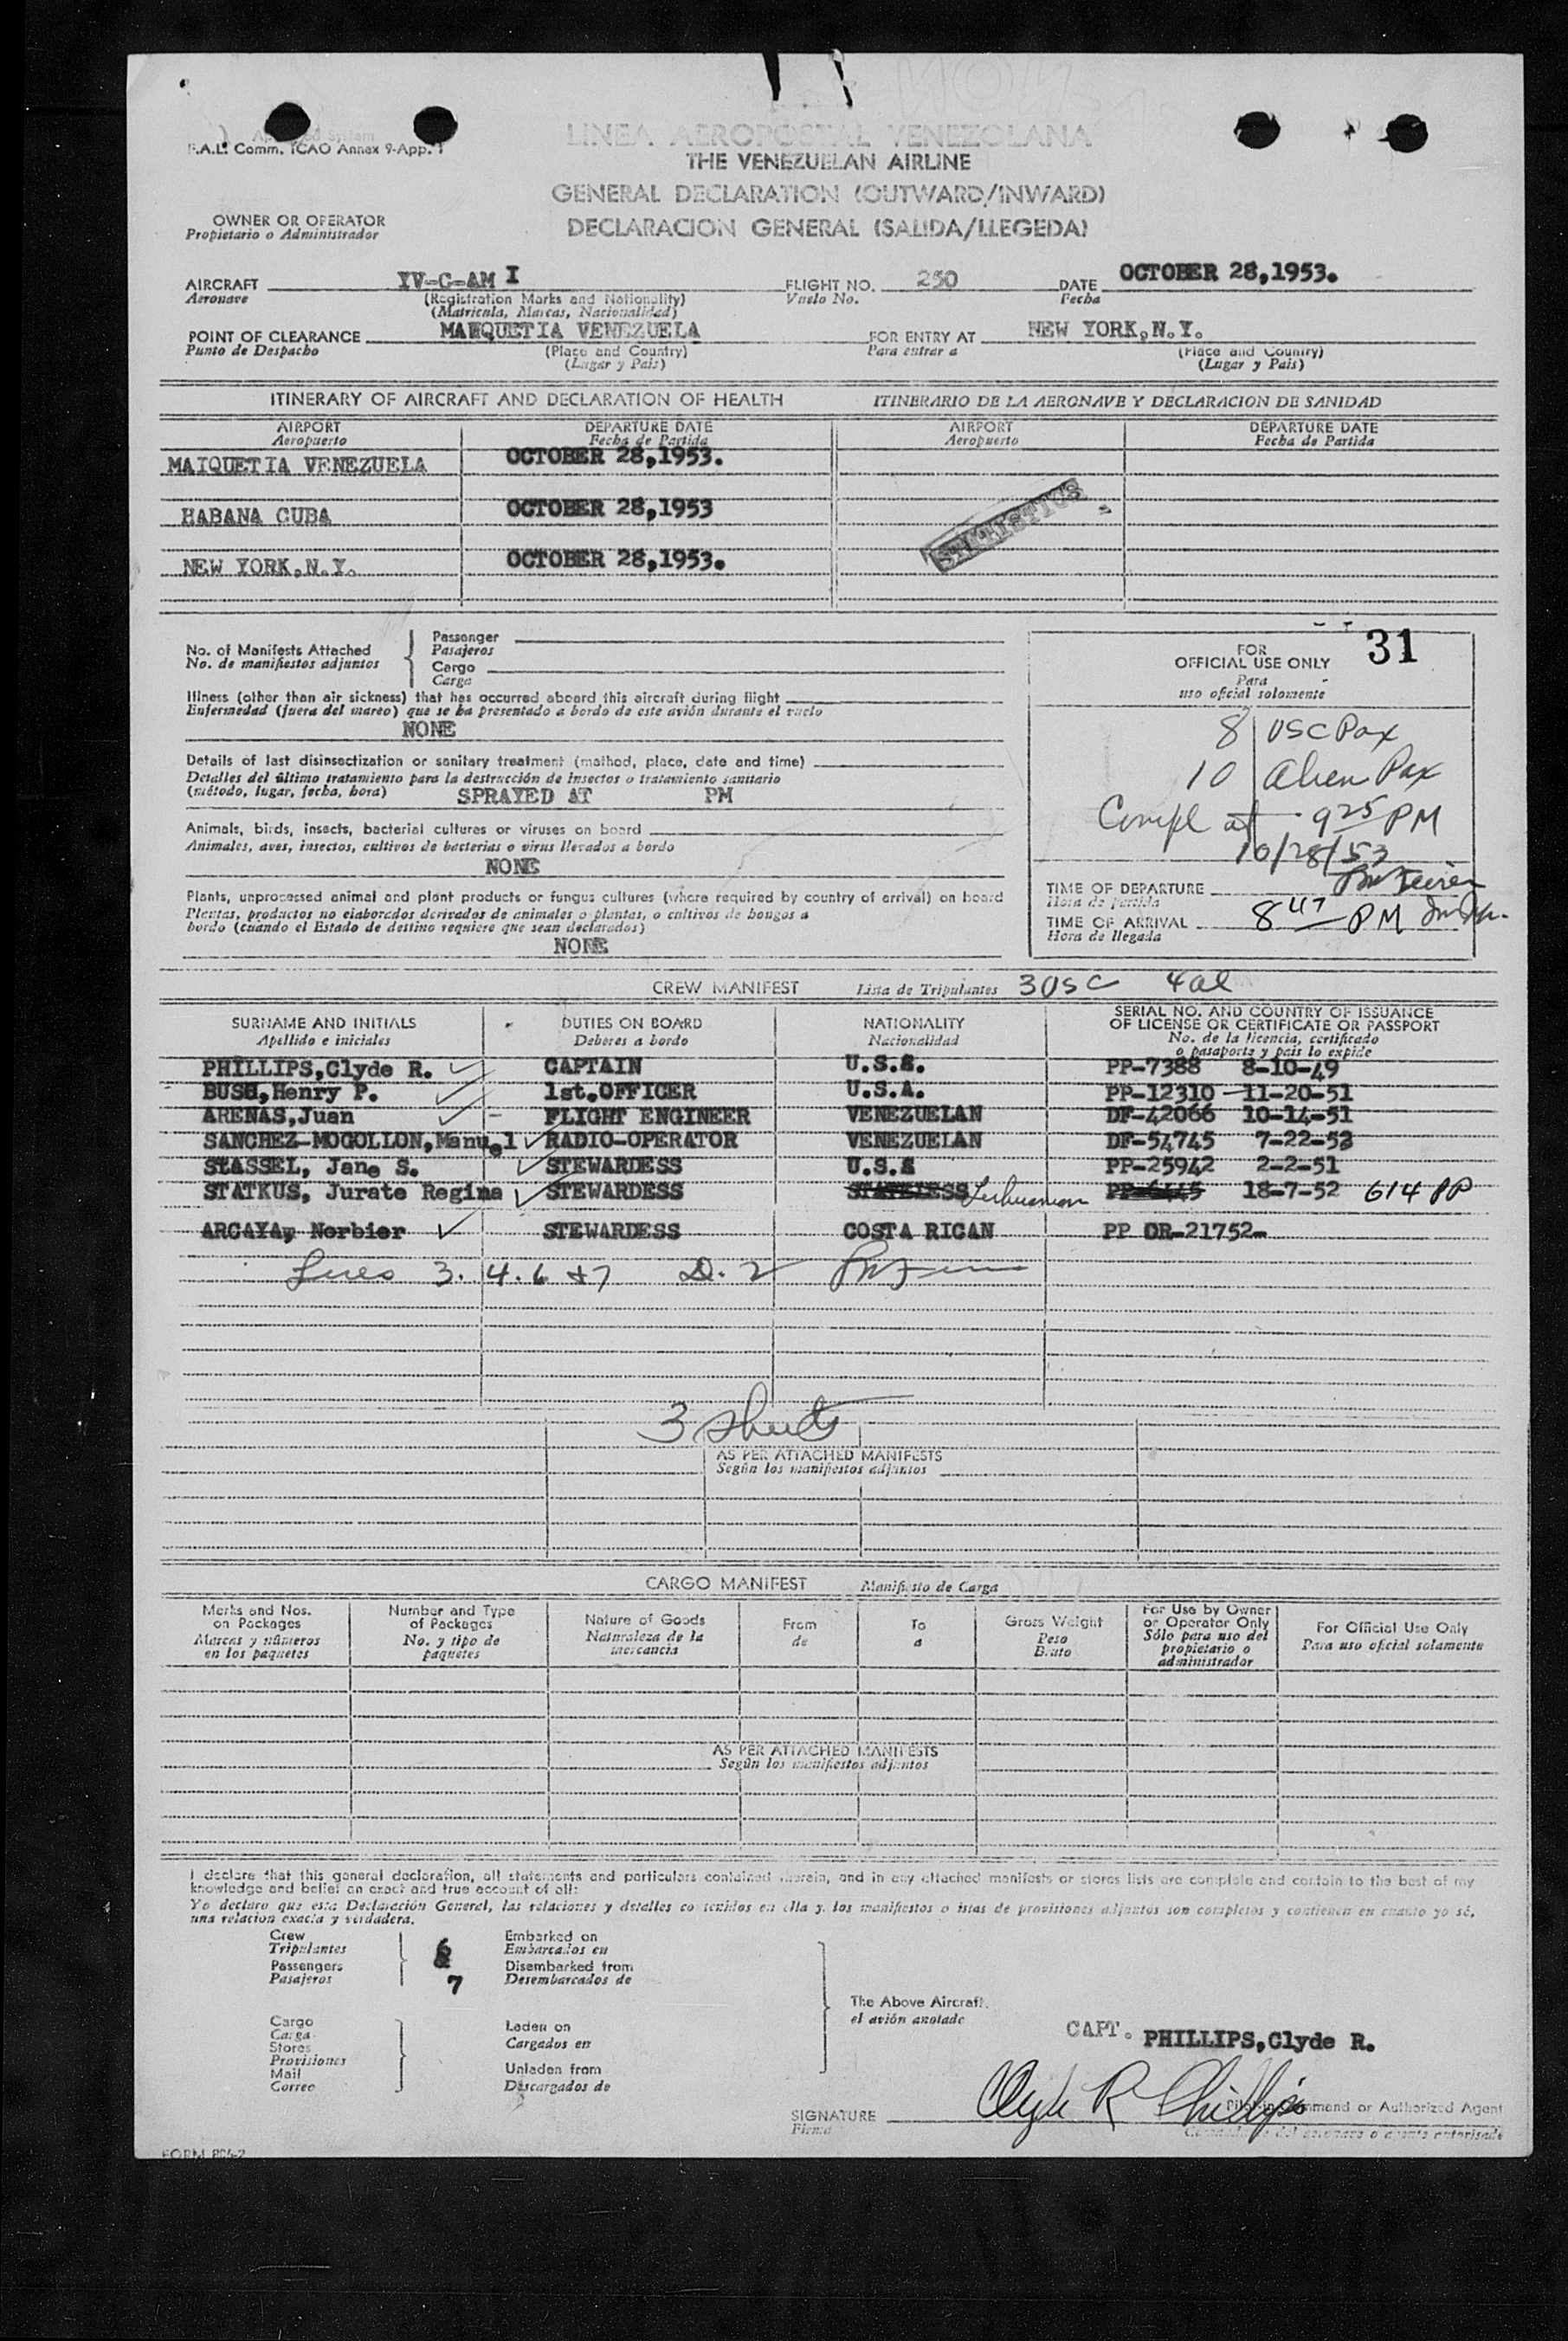 F.A.L. Comm. ICAO Annex 9-App. 1
LINEA AEROPOSTAL VENEZOLANA
THE VENEZUELAN AIRLINE
GENERAL DECLARATION (OUTWARD/INWARD)
DECLARACION GENERAL (SALIDA/LLEGEDA)
OWNER OR OPERATOR
Propietario o Administrador
AIRCRAFT YV-C-AM I FLIGHT NO. 250 DATE OCTOBER 28,1953.
Aeronave (Registration Marks and Nationality) Vuelo No. Fecha
(Matricula, Marcas, Nacionalidad)
POINT OF CLEARANCE MAIQUETIA VENEZUELA FOR ENTRY AT NEW YORK,N.Y.
Punto de Despacho (Place and Country) Para entrar a (Place and Country)
(Lugar y Pais) (Lugar y Pais)
ITINERARY OF AIRCRAFT AND DECLARATION OF HEALTH ITINERARIO DE LA AERONAVE Y DECLARACION DE SANIDAD
AIRPORT DEPARTURE DATE AIRPORT DEPARTURE DATE
Aeropuerto Fecha de Partida Aeropuerto Fecha de Partida
MAIQUETIA VENEZUELA OCTOBER 28,1953.
HABANA CUBA OCTOBER 28,1953
STATISTICS
NEW YORK,N.Y. OCTOBER 28,1953.
No. of Manifests Attached
No. de manifiestos adjuntos
Passenger
Pasajeros
Cargo
Carga
Illness (other than air sickness) that has occurred aboard this aircraft during flight
Enfermedad (fuera del mareo) que se ha presentado a bordo de este avión durante el vuelo
NONE
Details of last disinsectization or sanitary treatment (method, place, date and time)
Detalles del último tratamiento para la destrucción de insectos o tratamiento sanitario
(método, lugar, fecha, hora) SPRAYED AT PM
Animals, birds, insects, bacterial cultures or viruses on board
Animales, aves, insectos, cultivos de bacterias o virus llevados a bordo
NONE
Plants, unprocessed animal and plant products or fungus cultures (where required by country of arrival) on board
Plantas, productos no elaborados derivados de animales o plantas, o cultivos de hongos a
bordo (cuando el Estado de destino requiere que sean declarados)
NONE
FOR
OFFICIAL USE ONLY 31
Para
uso oficial solamente
8 USC Pax
10 Alien Pax
Compl at 9 25 PM
10/28/53
TIME OF DEPARTURE
Hora de partida
TIME OF ARRIVAL 8 47 PM
Hora de llegada
CREW MANIFEST Lista de Tripulantes 3 USC 4 al
SURNAME AND INITIALS DUTIES ON BOARD NATIONALITY SERIAL NO. AND COUNTRY OF ISSUANCE
OF LICENSE OR CERTIFICATE OR PASSPORT
Apellido e iniciales Deberes a bordo Nacionalidad No. de la licencia, certificado
o pasaporte y pais lo expide
PHILLIPS,Clyde R. CAPTAIN U.S.A. PP-7388 8-10-49
BUSH,Henry P. 1st.OFFICER U.S.A. PP-12310 11-20-51
ARENAS,Juan FLIGHT ENGINEER VENEZUELAN DF-42066 10-14-51
SANCHEZ-MOGOLLON,Manuel RADIO-OPERATOR VENEZUELAN DF-54745 7-22-53
STASSEL, Jane S. STEWARDESS U.S.A PP-25942 2-2-51
STATKUS, Jurate Regina STEWARDESS STATELESS Lithuanian PP-6445 18-7-52 614 PP
ARCAYA, Norbier STEWARDESS COSTA RICAN PP CR-21752-
Lines 3. 4. 6 & 7 D. 2
3 sheets
AS PER ATTACHED MANIFESTS
Según los manifiestos adjuntos
CARGO MANIFEST Manifiesto de Carga
Marks and Nos.
on Packages
Marcas y números
en los paquetes
Number and Type
of Packages
No. y tipo de
paquetes
Nature of Goods
Naturaleza de la
mercancia
From
de
To
a
Gross Weight
Peso
Bruto
For Use by Owner
or Operator Only
Sólo para uso del
propietario o
administrador
For Official Use Only
Para uso oficial solamente
AS PER ATTACHED MANIFESTS
Según los manifiestos adjuntos
I declare that this general declaration, all statements and particulars contained therein, and in any attached manifests or stores lists are complete and contain to the best of my
knowledge and belief an exact and true account of all:
Yo declaro que esta Declaración General, las relaciones y detalles contenidos en ella y los manifiestos o listas de provisiones adjuntos son completos y contienen en cuanto yo sé,
una relación exacta y verdadera.
Crew
Tripulantes 6
Passengers
Pasajeros 7
Embarked on
Embarcados en
Disembarked from
Desembarcados de
Cargo
Carga
Stores
Provisiones
Mail
Correo
Laden on
Cargados en
Unladen from
Descargados de
The Above Aircraft.
el avión anotado
CAPT. PHILLIPS,Clyde R.
SIGNATURE Clyde R Phillips
Firma
Pilot in Command or Authorized Agent
FORM 806-2